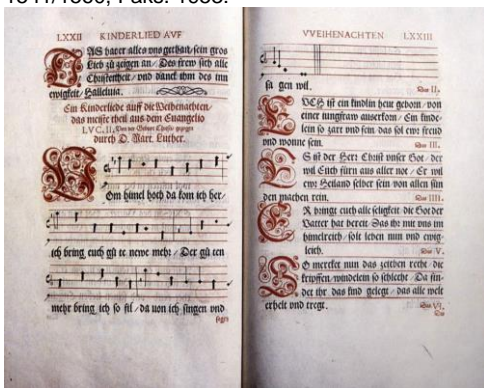 1541/1890, Faks. 1988.
LXXII KINDERLIED AVF
DAS hat er alles uns gethan / sein gros
Lieb zů zeigen an / Des frew sich alle
Christenheit / vnd danck jhm des inn
ewigkeit / Halleluia.
Ein Kinderliede auff die Weihenachten /
das meiste theil aus dem Euangelio
LVC. II.
durch D. Mart. Luther.
VOm himel hoch da kom ich her /
ich bring euch gů te newe mehr / Der gů ten
mehr bring ich so fil / da von ich singen vnd
sagen
VVEIHENACHTEN LXXIII
sa gen wil.
Der II.
EVCH ist ein kindlin heut geborn / von
einer iungfraw auserkorn / Ein kinde-
lein so zart vnd fein das sol ewr freud
vnd wonne sein.
Der III.
ES ist der Herr Christ vnser Got / der
wil Euch fürn aus aller not / Er wil
ewr Heiland selber sein von allen sün
den machen rein.
Der IIII.
ER bringt euch alle seligkeit / die Got der
Vatter hat bereit / Das jhr mit vns im
himelreich / solt leben nun vnd ewig-
leich.
Der V.
SO mercket nun das zeichen recht / die
krippffen / windelein so schlecht / Da fin-
det jhr das kind gelegt / das alle welt
erhelt vnd tregt.
Der VI.